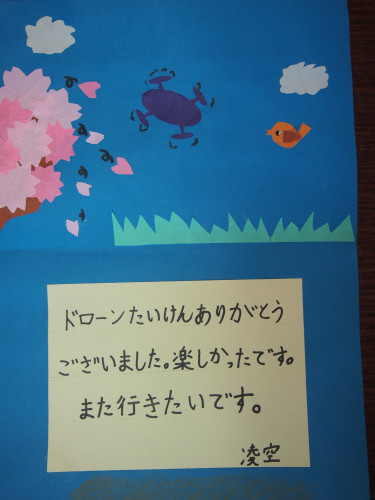 ドローンたいけんありがとう
ございました。楽しかったです。
また行きたいです。
凌空